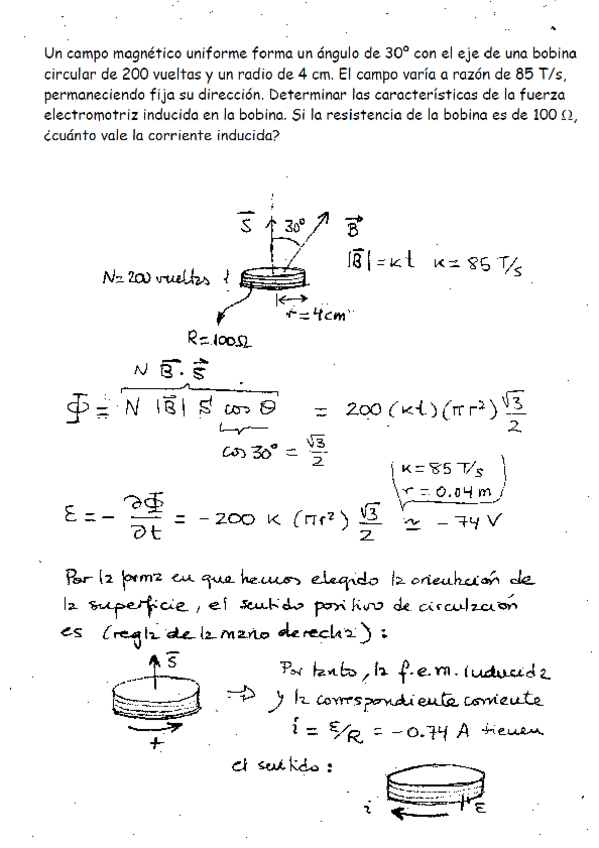 Un campo magnético uniforme forma un ángulo de 30º con el eje de una bobina
circular de 200 vueltas y un radio de 4 cm. El campo varía a razón de 85 T/s,
permaneciendo fija su dirección. Determinar las características de la fuerza
electromotriz inducida en la bobina. Si la resistencia de la bobina es de 100 Ω,
¿cuánto vale la corriente inducida?
S⃗ 30º B⃗
|B⃗| = kt k = 85 T/s
N = 200 vueltas
r = 4 cm
R = 100Ω
N B⃗ · S⃗
Φ = N |B⃗| S cos θ = 200 (kt) (π r²) √3/2
cos 30º = √3/2
k = 85 T/s
r = 0.04 m
ε = - ∂Φ/∂t = -200 k (πr²) √3/2 ≃ -74 V
Por la forma en que hemos elegido la orientación de
la superficie, el sentido positivo de circulación
es (regla de la mano derecha):
S⃗
+
⇒ Por tanto, la f.e.m. inducida
y la correspondiente corriente
i = ε/R = -0.74 A tienen
el sentido:
i ε